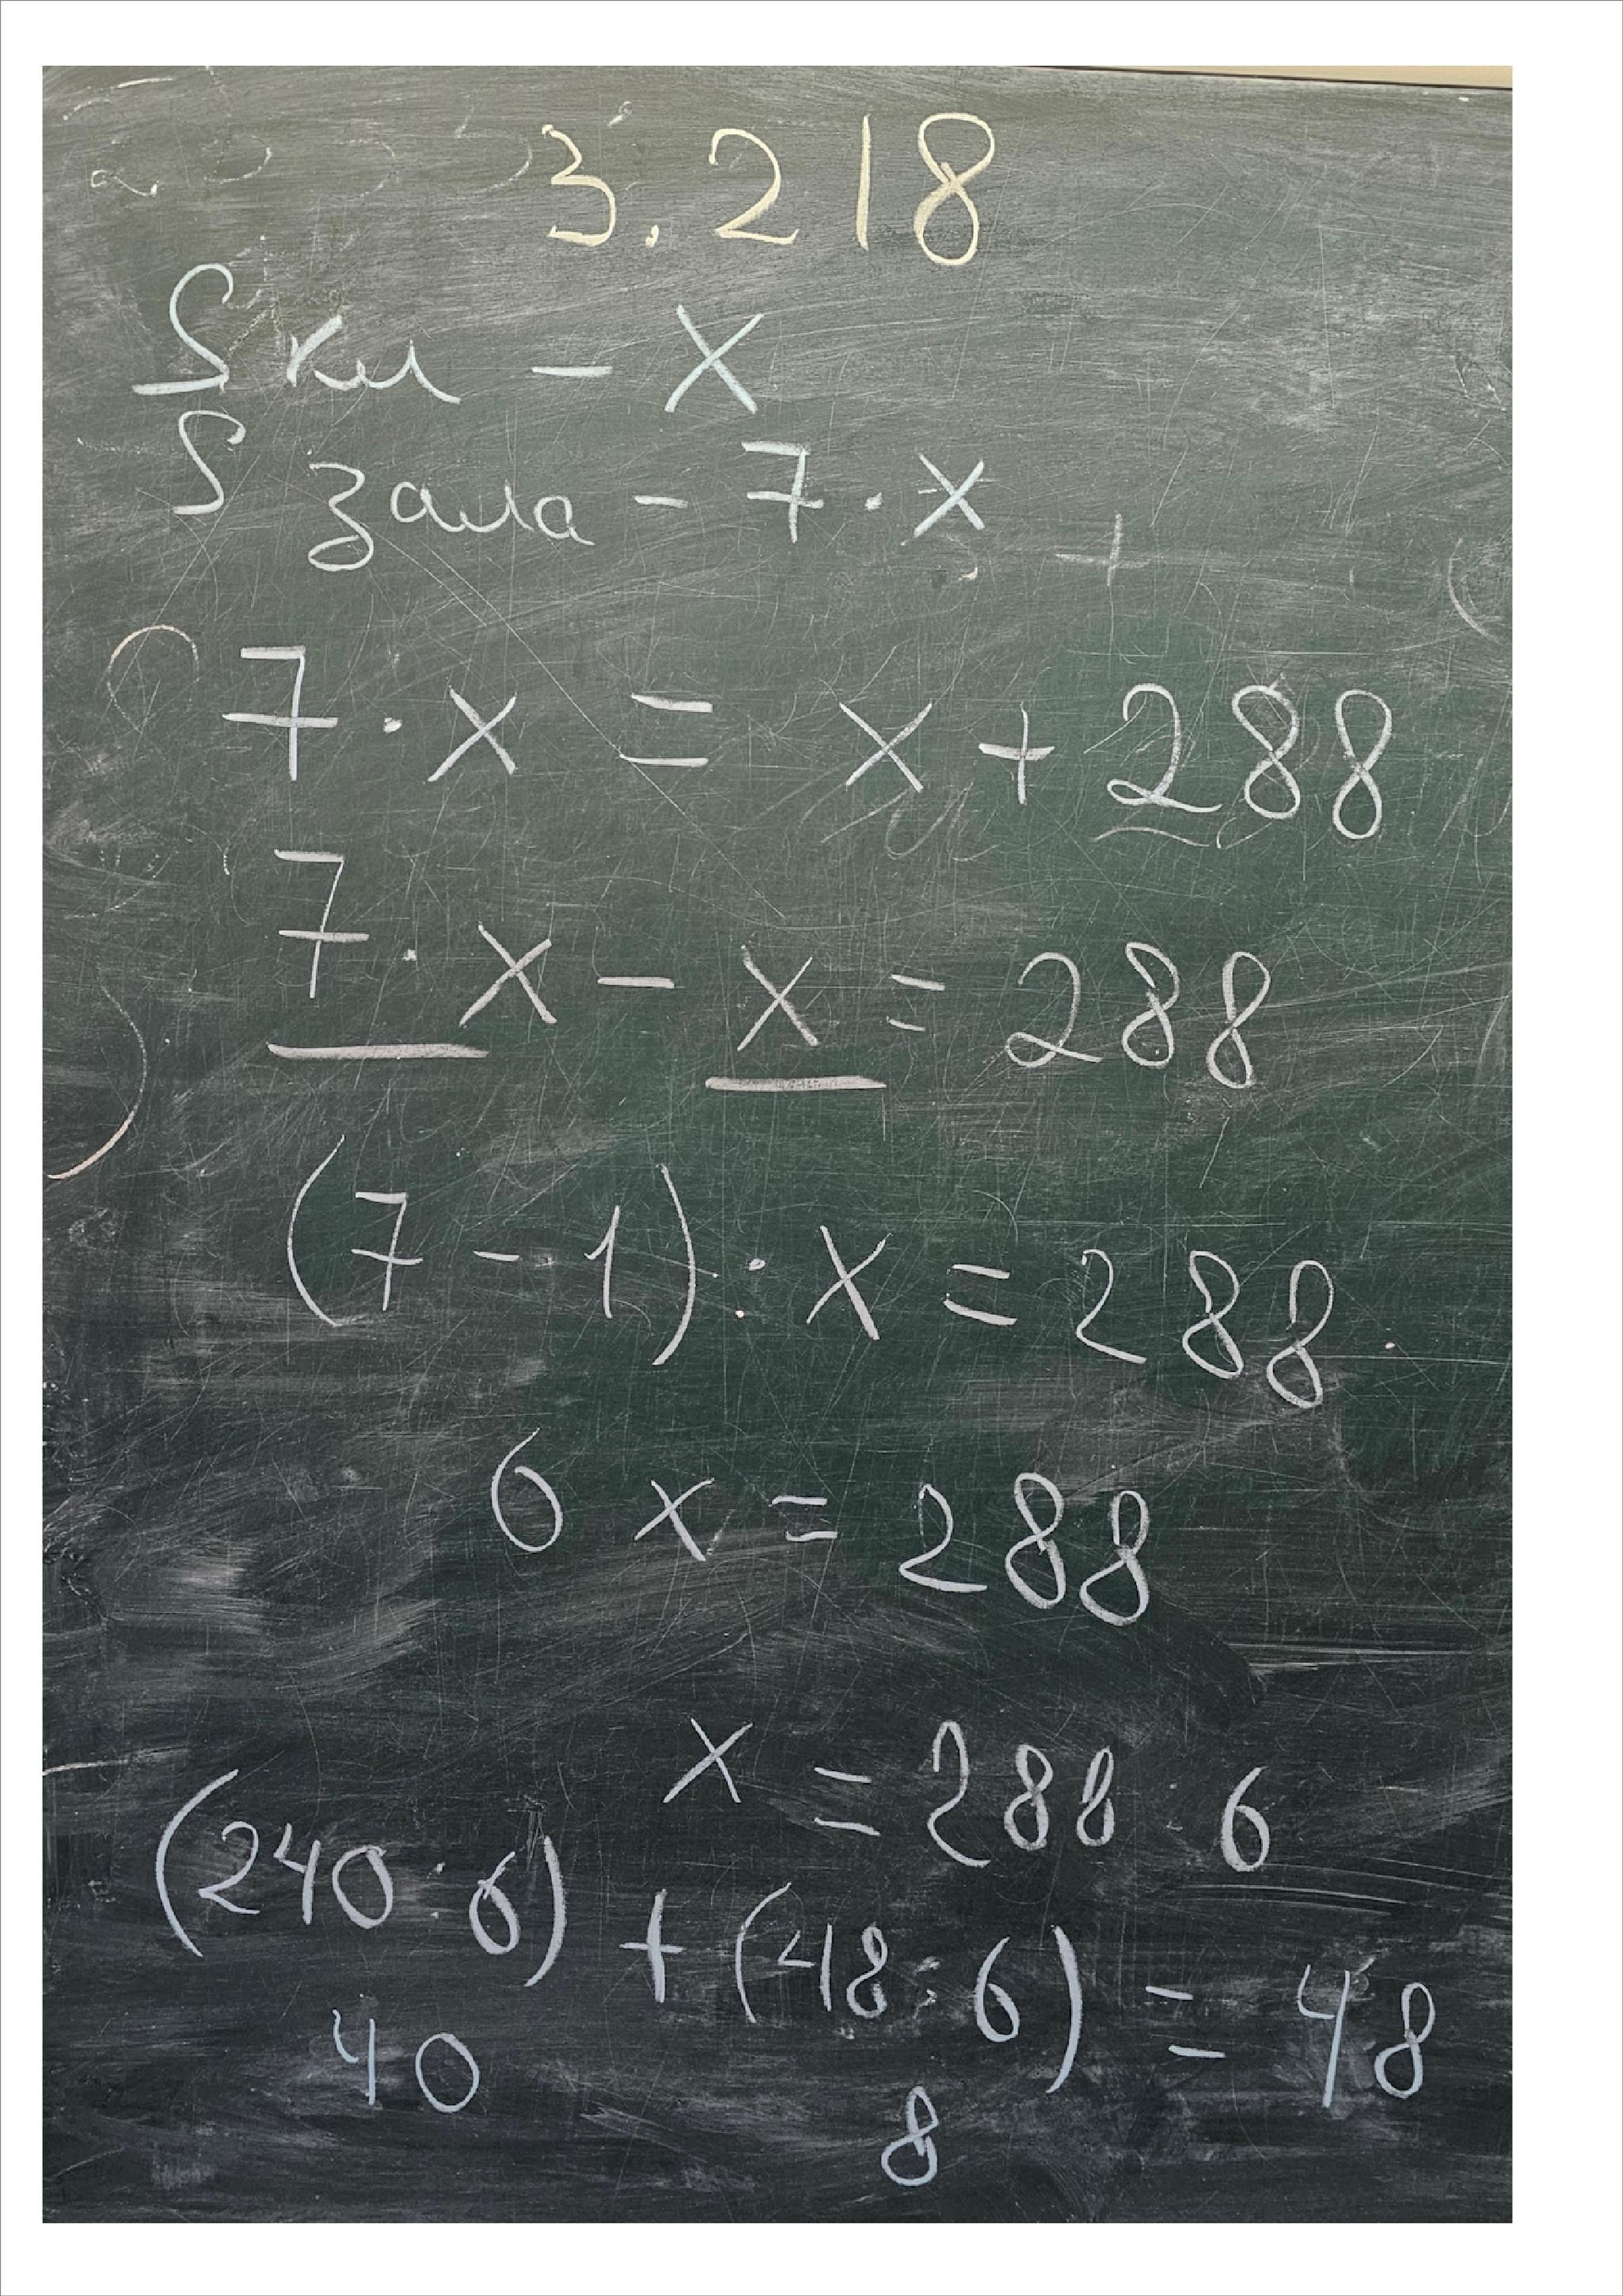 3.218
S кл – x
S зала – 7 · x
7 · x = x + 288
7 · x – x = 288
(7 – 1) · x = 288
6 x = 288
x = 288 6
(240 : 6) + (48 : 6) = 48
40 8